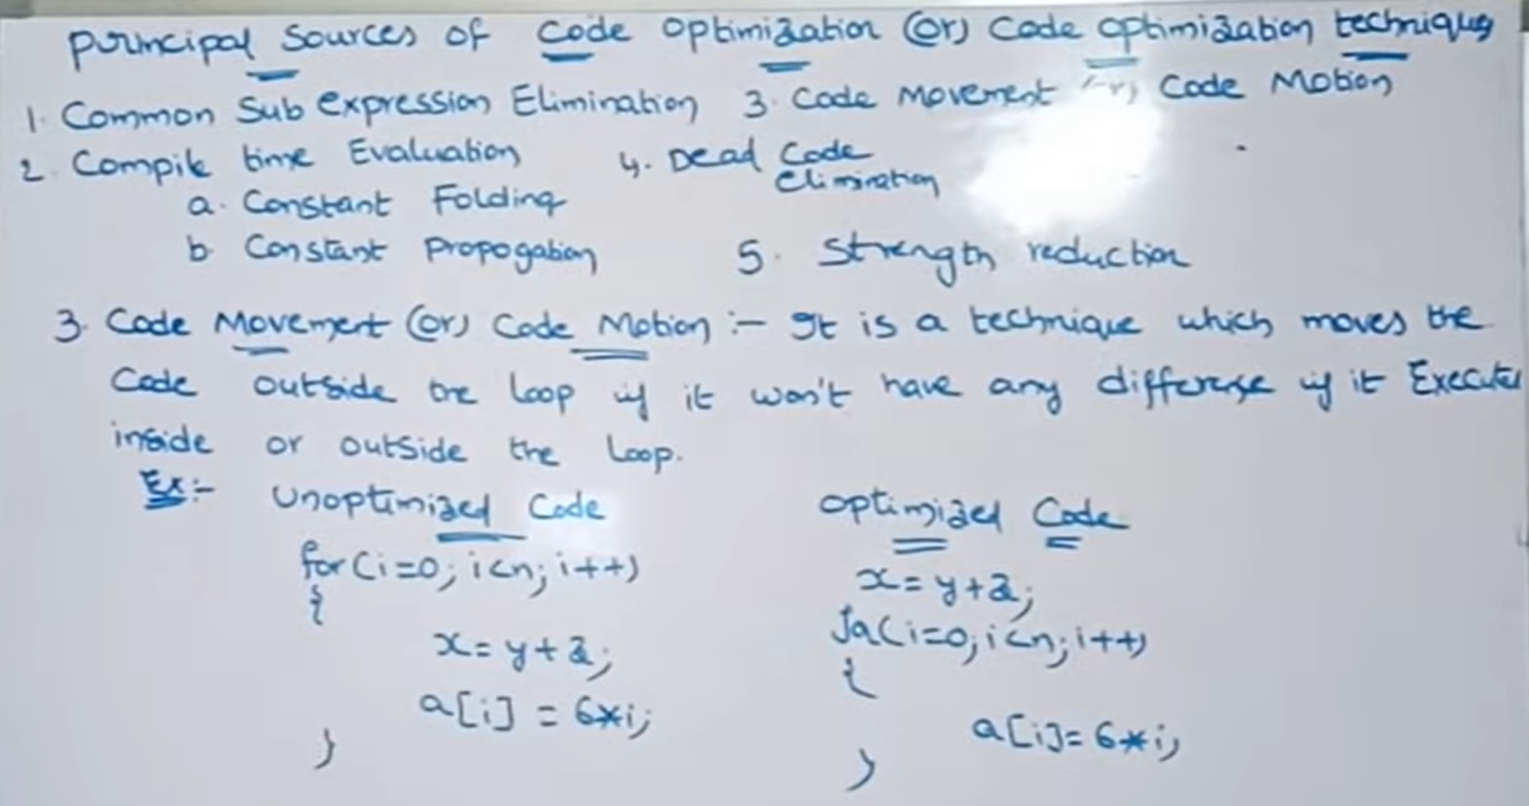 Principal Sources of Code Optimization (or) Code Optimization techniques
1. Common Sub Expression Elimination 3. Code Movement (or) Code Motion
2. Compile time Evaluation 4. Dead Code Elimination
a. Constant Folding
b. Constant Propogation 5. Strength reduction
3. Code Movement (or) Code Motion :- It is a technique which moves the
Code outside the loop if it won't have any difference if it Executes
inside or outside the loop.
Ex:- Unoptimized Code
for(i=0; i<n; i++)
{
x = y+z;
a[i] = 6*i;
}
Optimized Code
x = y+z;
for(i=0; i<n; i++)
{
a[i]= 6*i;
}